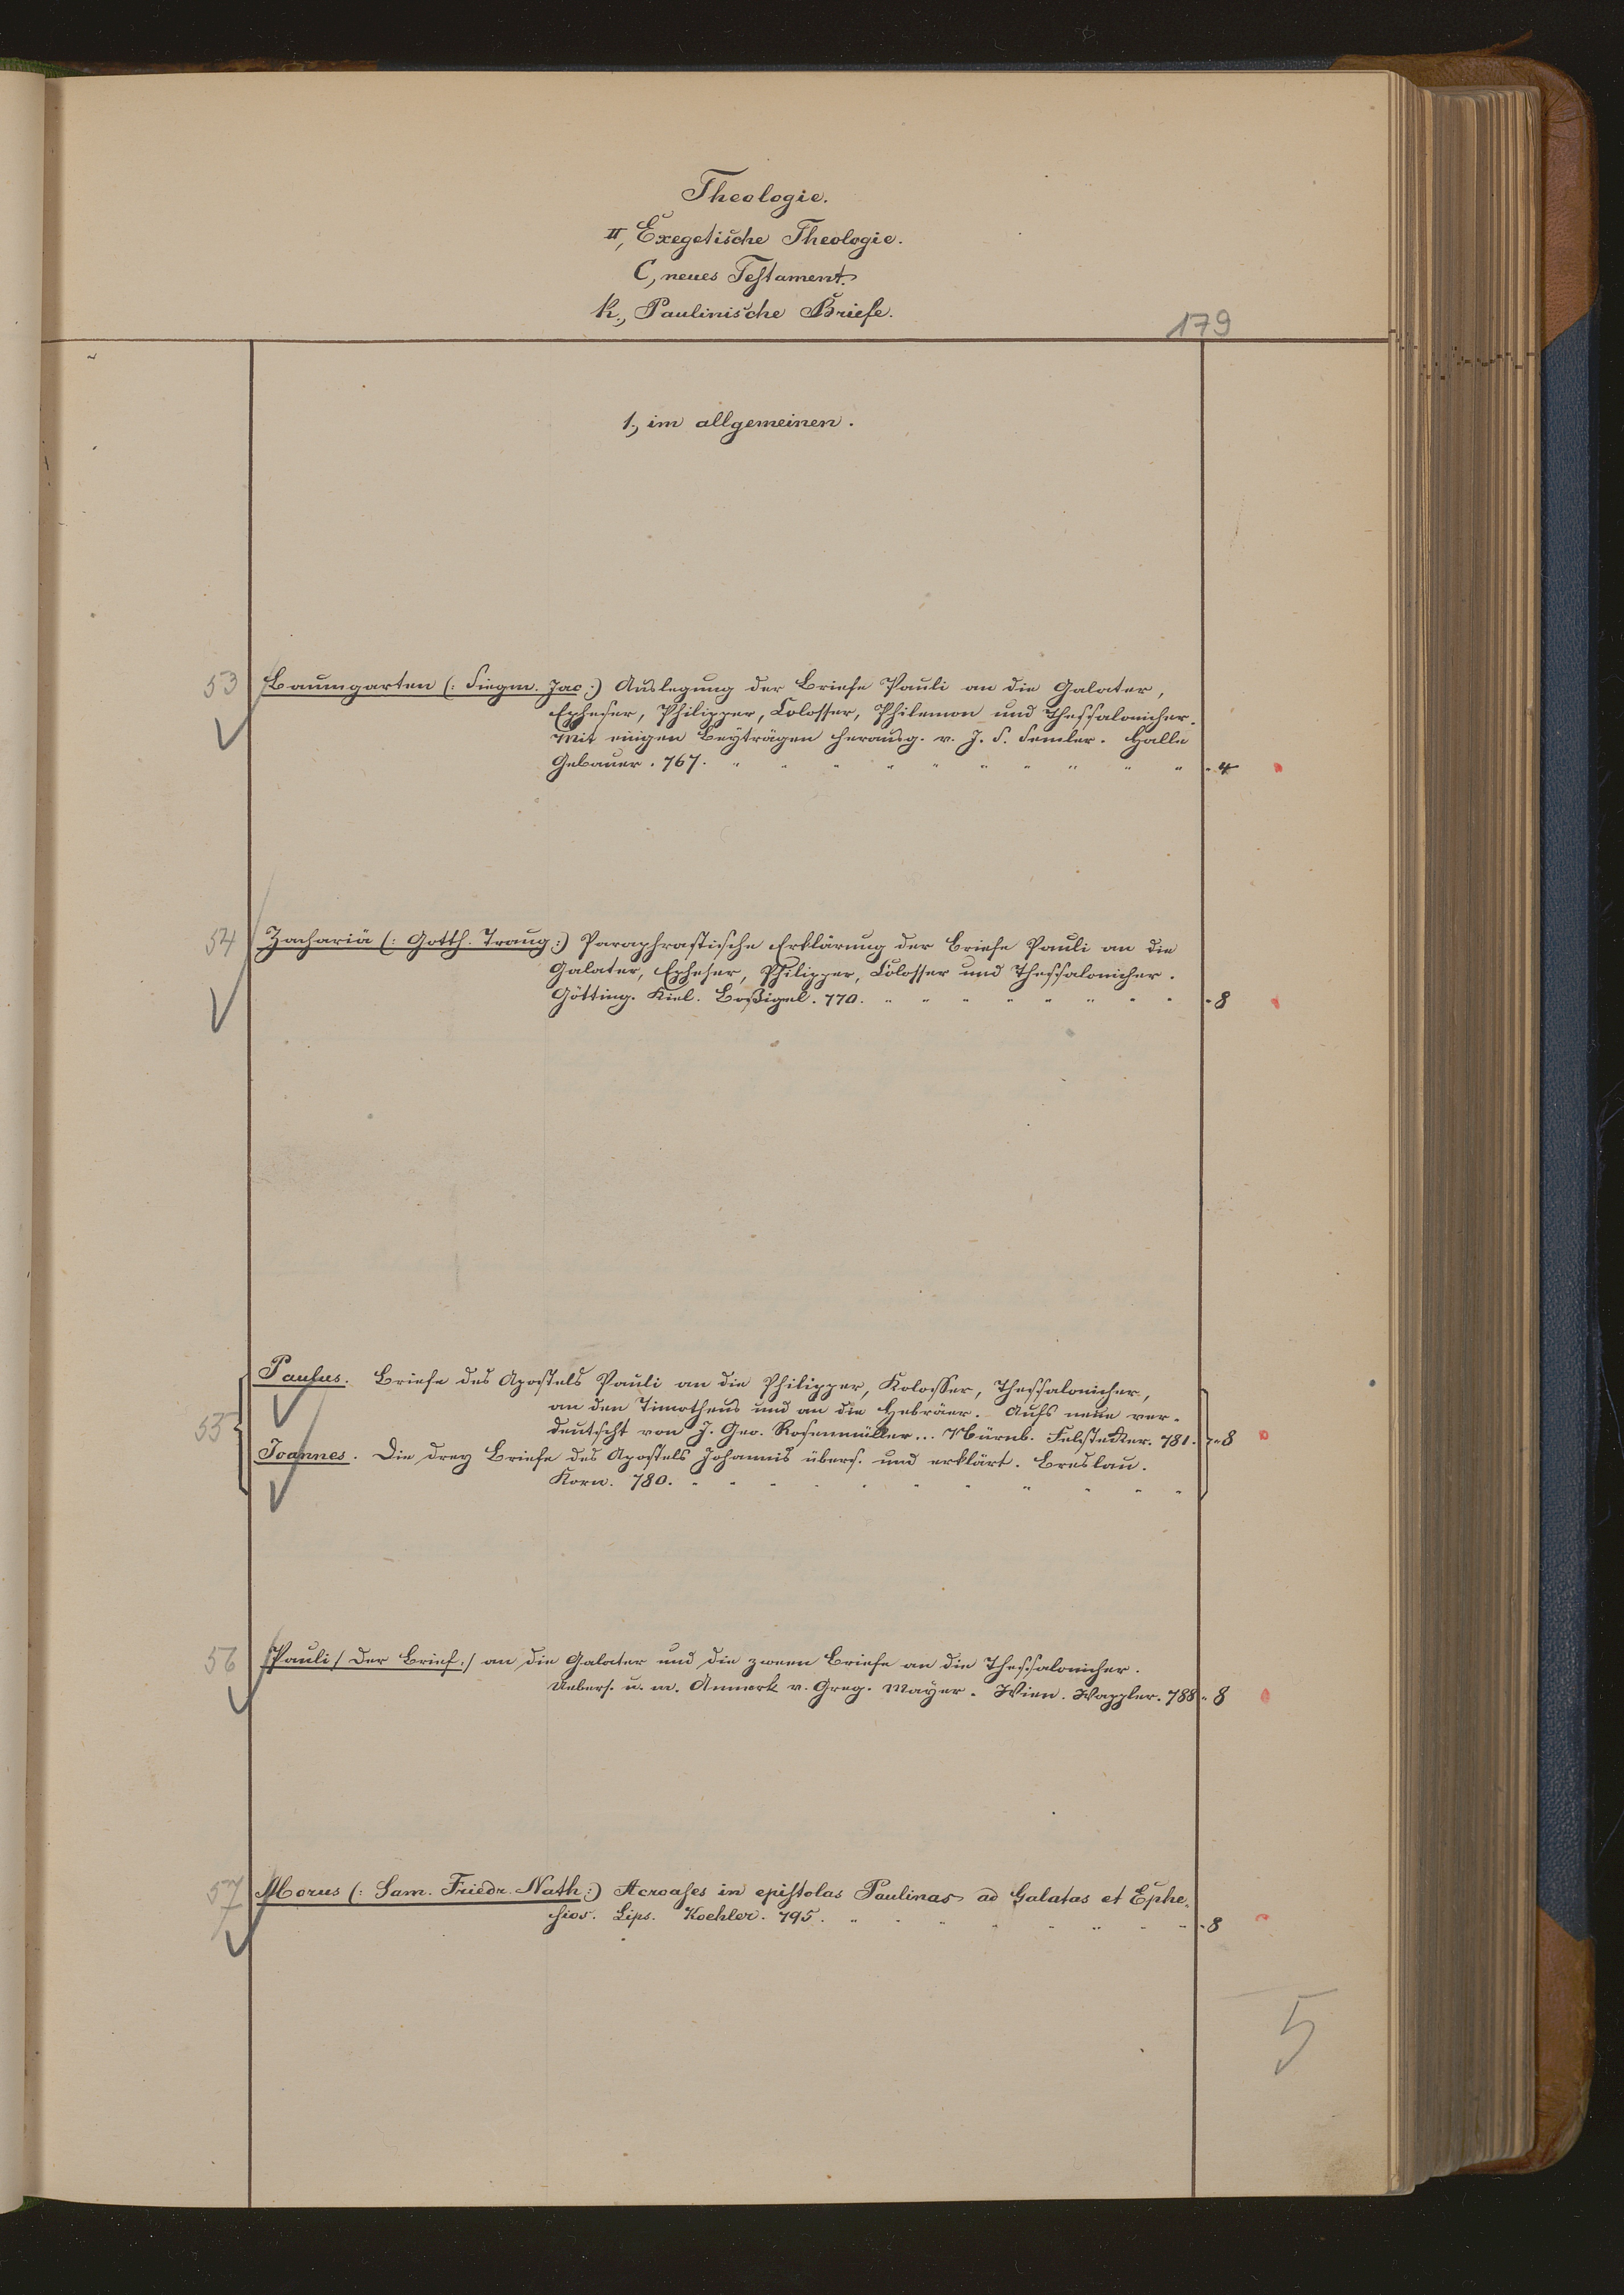 Theologie.
II, Exegetische Theologie.
C, neues Testament.
k., Paulinische Briefe.
179
1., im allgemeinen.
53 Baumgarten (: Siegm. Jac :) Auslegung der Briefe Pauli an die Galater,
Epheser, Philipper, Colosser, Philemon und Thessalonicher.
Mit einigen Beyträgen herausg. v. J. S. Semler. Halle
Gebauer. 767. " " " " " " " " " " - 4
54 Zachariä (: Gotth. Traug :) Paraphrastische Erklärung der Briefe Pauli an die
Galater, Epheser, Philipper, Colosser und Thessalonicher.
Götting. Kiel. Boßigel. 770. " " " " " " " " - 8
Paulus. Briefe des Apostels Pauli an die Philipper, Kolosser, Thessalonicher,
an den Timotheus und an die Hebräer. Aufs neue ver-
55 deutscht von J. Geo. Rosenmüller... Nürnb. Felsseker. 781. - 8
Joannes. Die drey Briefe des Apostels Johannis übers. und erklärt. Breslau.
Korn. 780. " " " " " " " " " " "
56 Pauli / der Brief :/ an die Galater und die zween Briefe an die Thessalonicher.
Uebers. u. m. Anmerk v. Greg. Mayer. Wien. Wappler. 788 - 8
57 Morus (: Sam. Friedr. Nath :) Acroases in epistolas Paulinas ad Galatas et Ephe-
sios. Lips. Koehler. 795. " " " " " " " " - 8
5